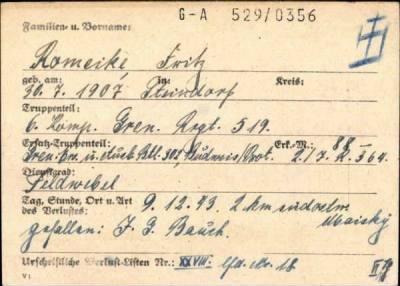 G-A 529/0356
Familien- u. Vorname:
Romeike, Fritz
geb. am: in: Kreis:
30. 7. 1907 Steindorf
Truppenteil:
6. Komp. Gren. Rgt. 519.
Ersatz-Truppenteil: Erk.-M.:
Gren. Ers. u. Ausb. Btl. 302, Budweis/Prot. 2./
Dienstgrad:
Feldwebel
Tag, Stunde, Ort u. Art
des Verlustes:
9. 12. 43. 2 km Maisky
gefallen: J. G. Bauch.
Urschriftliche Verlust-Listen Nr.: XXVIII. lfd. Nr. 18
V1